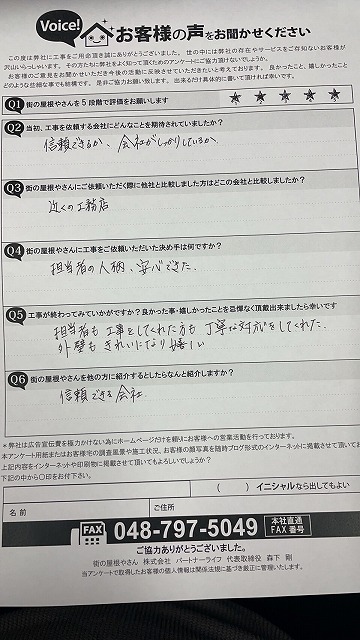 Voice!
お客様の声をお聞かせください
この度は弊社に工事をご用命頂き誠にありがとうございました。世の中には弊社の存在やサービスをご存知ないお客様が
沢山いらっしゃいます。その方たちに弊社をよく知って頂くためのアンケートにご協力頂けないでしょうか。
お客様のご意見をお聞かせいただき今後の活動に反映させていただきたいと考えております。良かったこと、嬉しかったこと
どのような些細な事でも結構です。是非ご協力お願い致します。出来るだけ具体的に書いて頂ければ幸いです。
Q1 街の屋根やさんを5段階で評価をお願いします ★ ★ ★ ★ ★
Q2 当初、工事を依頼する会社にどんなことを期待されていましたか?
信頼できるか、会社がしっかりしているか
Q3 街の屋根やさんにご依頼いただく際に他社と比較しました方はどこの会社と比較しましたか?
近くの工務店
Q4 街の屋根やさんに工事をご依頼いただいた決め手は何ですか?
担当者の人柄、安心できた、
Q5 工事が終わってみていかがですか?良かった事・嬉しかったことを忌憚なく頂戴出来ましたら幸いです
担当者も工事をしてくれた方も丁寧な対応をしてくれた。
外壁もきれいになり嬉しい
Q6 街の屋根やさんを他の方に紹介するとしたらなんと紹介しますか?
信頼できる会社
*弊社は広告宣伝費を極力かけない為にホームページだけを頼りにお客様への営業活動を行っております。
本アンケート用紙またはお客様宅の調査風景や施工状況、お客様の顔写真を随時ブログ形式のインターネットに掲載させて頂いてお
上記内容をインターネットや印刷物に掲載させて頂いてもよろしいでしょうか?
下記の中から〇印をお付下さい。
( ) イニシャルなら出してもよい
名前
ご住所
FAX 048-797-5049 本社直通 FAX 番号
ご協力ありがとうございました。
街の屋根やさん 株式会社 パートナーライフ 代表取締役 森下 剛
当アンケートで取得したお客様の個人情報は関係法規に基づき厳正に管理いたします。